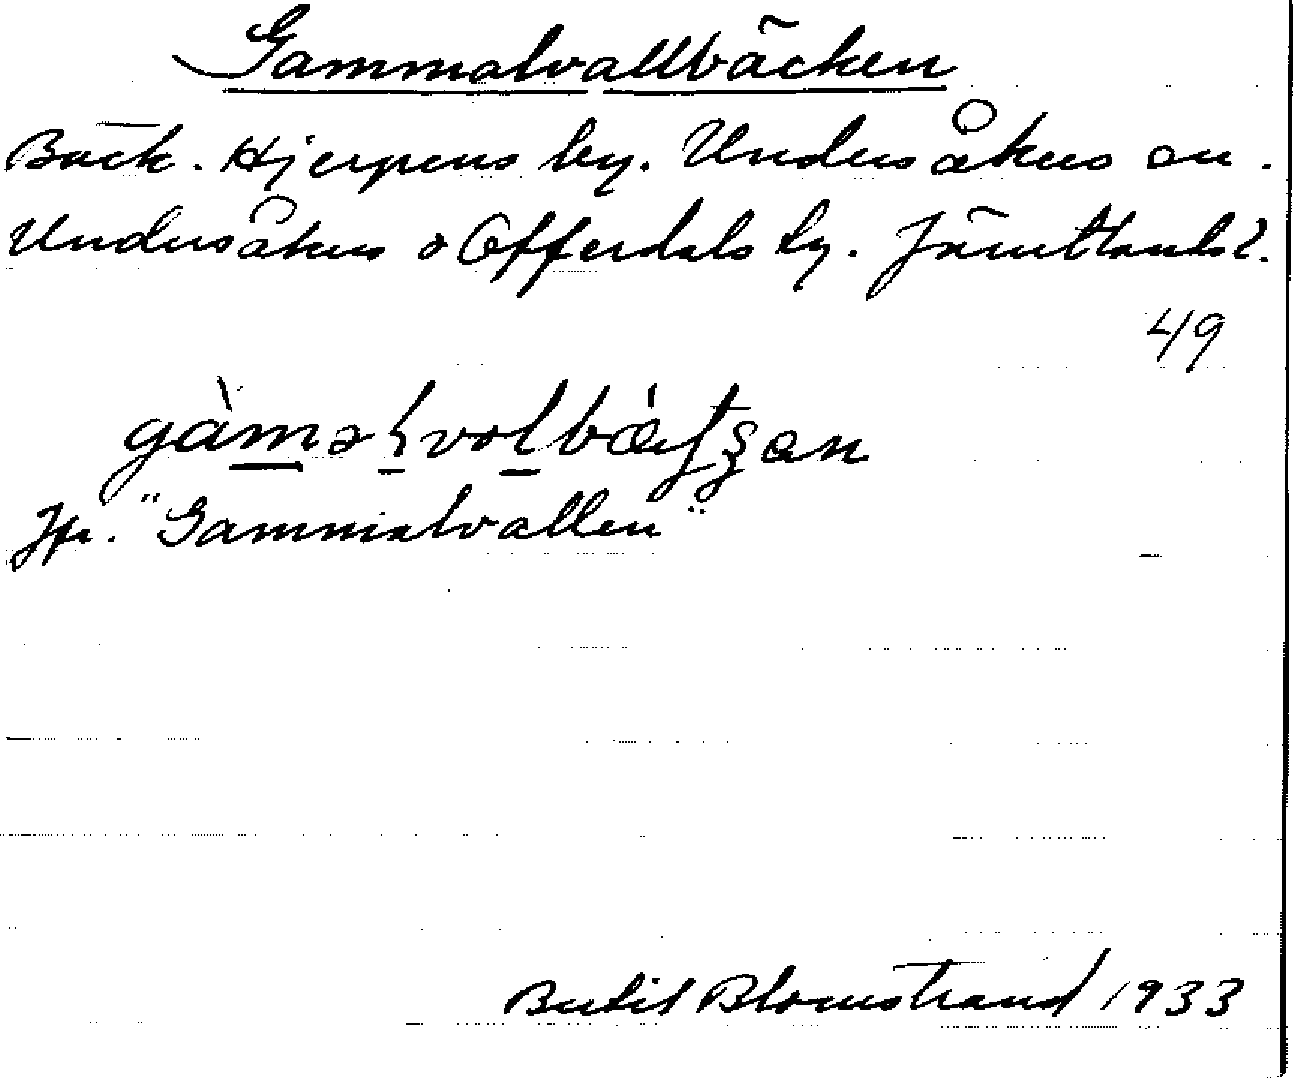 Gammalvallbäcken
Bäck. Hjerpens by. Undersåkers sn.
Undersåkers o Offerdals tg. Jämtlands l.
49
Jfr. "Gammalvallen"
Bertil Blomstrand 1933